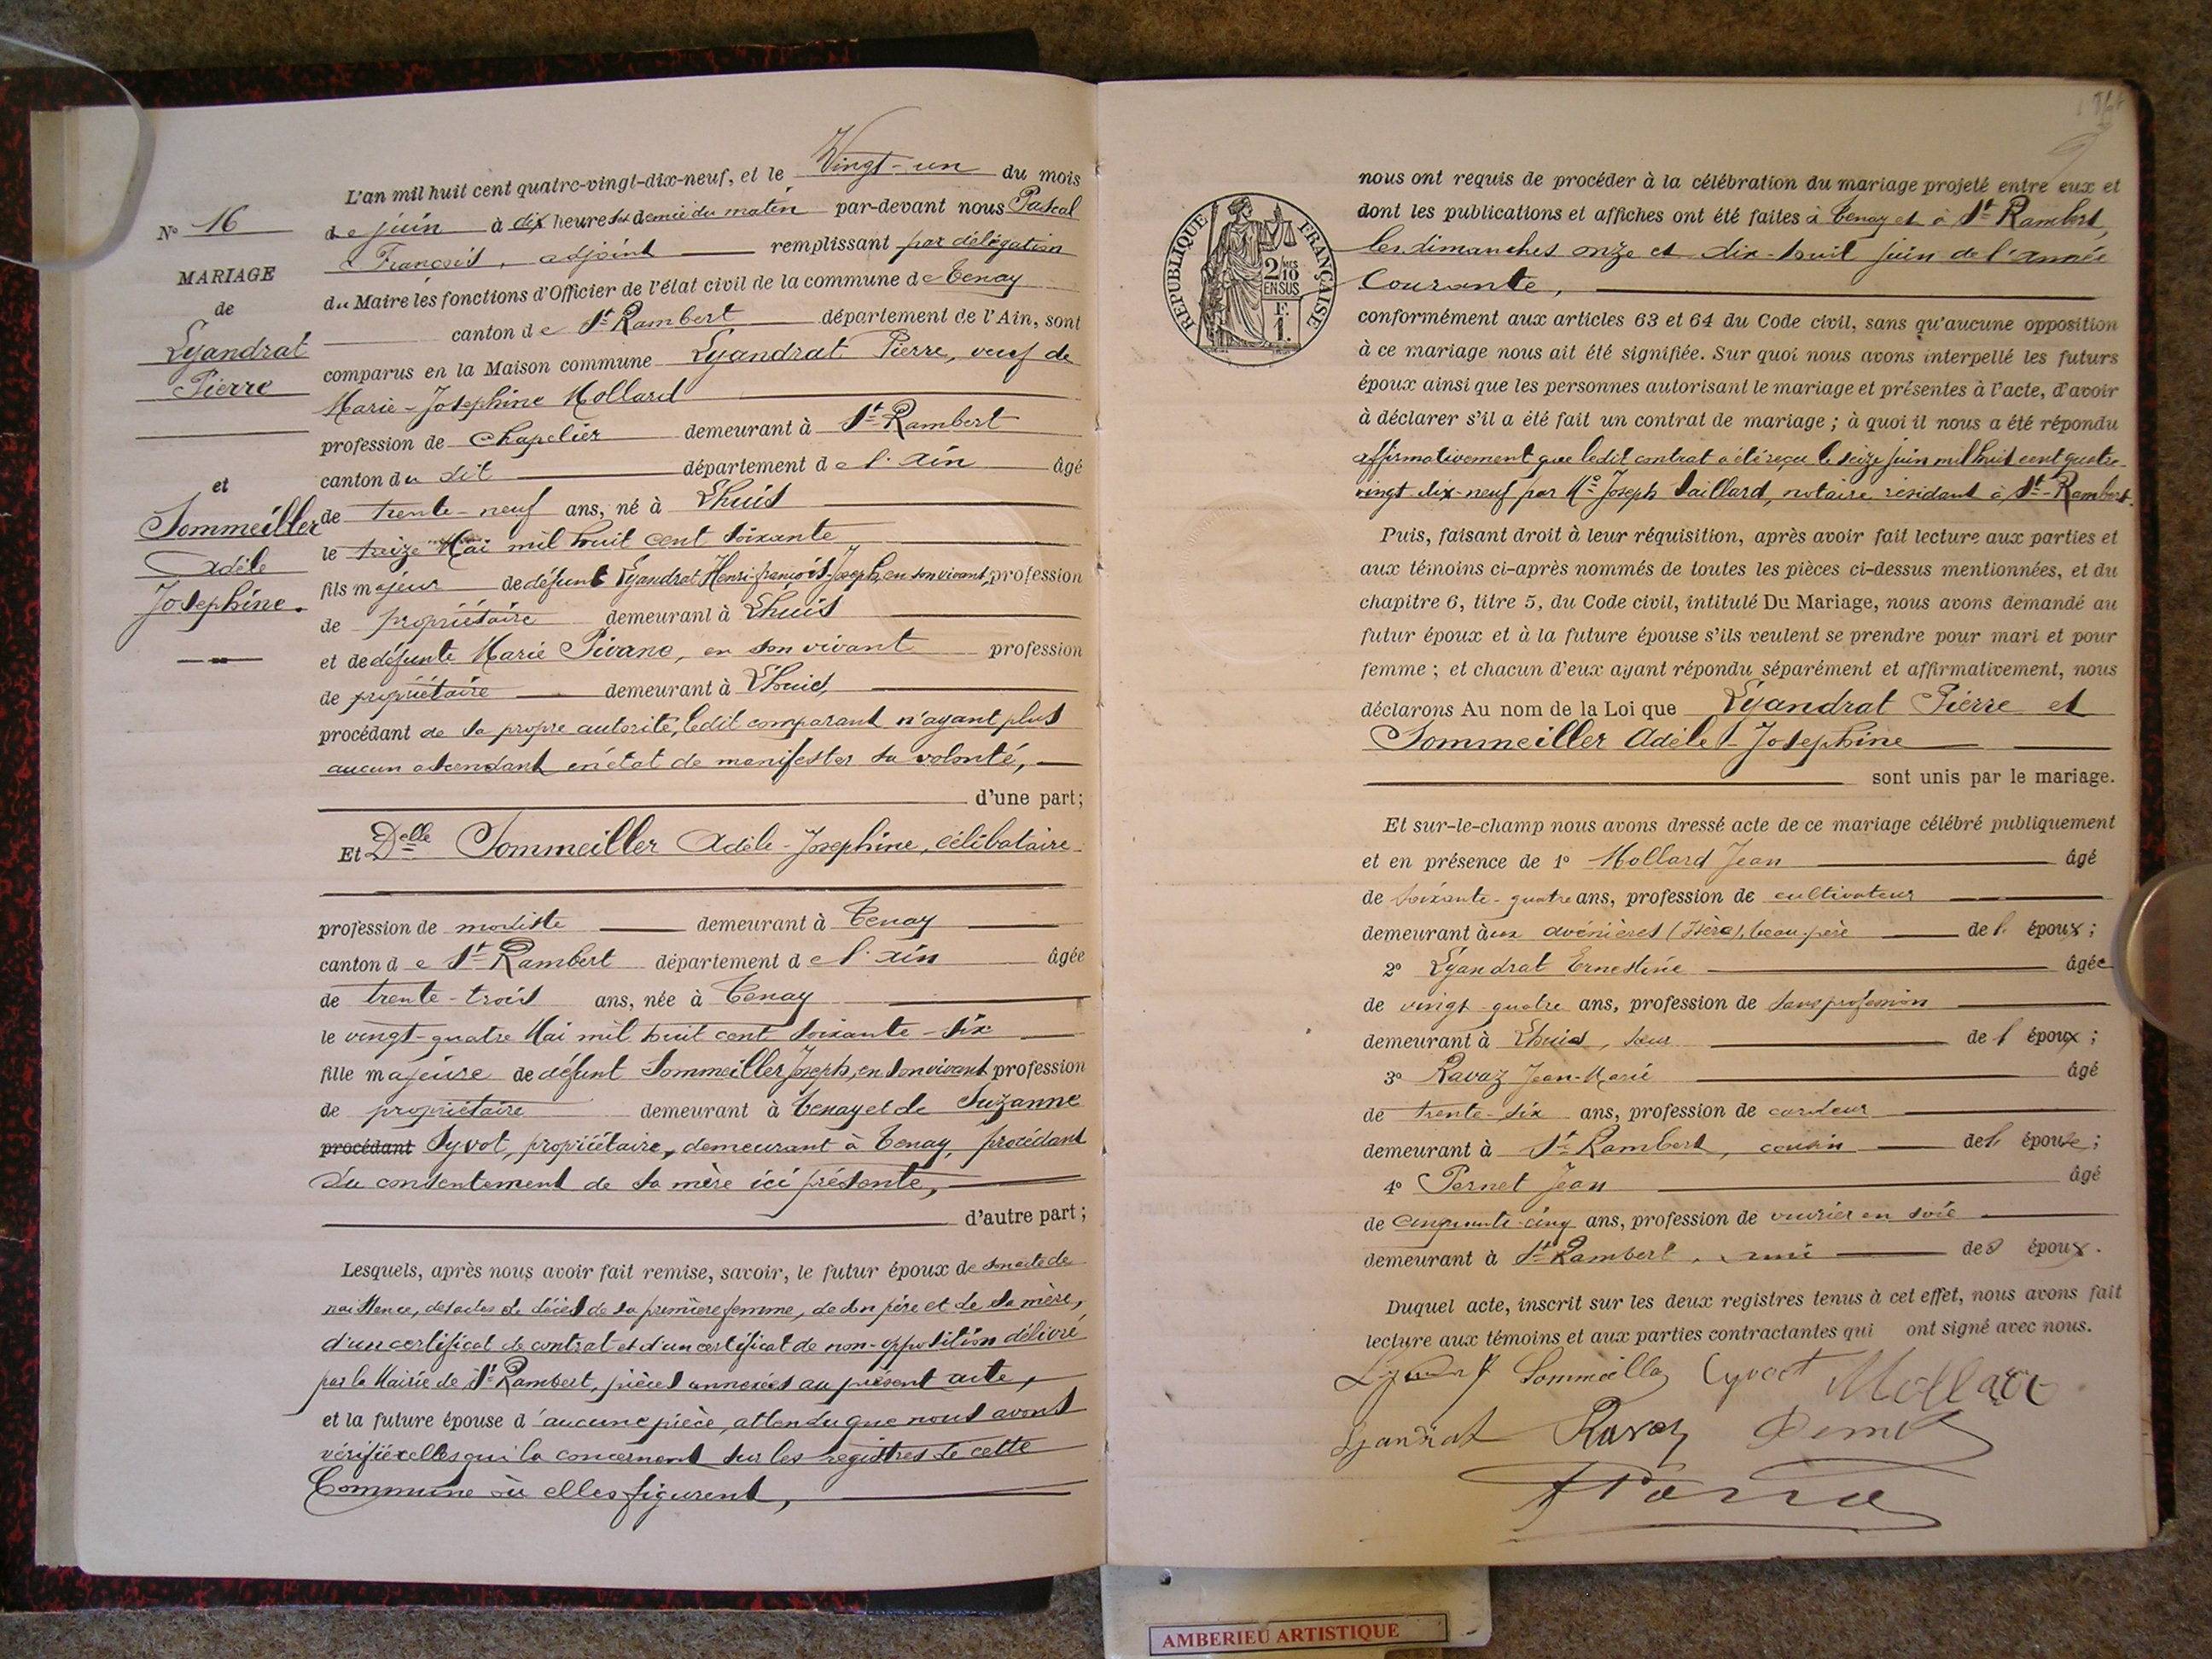 N° 16
MARIAGE
de
Lyandrat
Pierre
et
Sommeiller
Adèle
Josephine.
L'an mil huit cent quatre-vingt-dix-neuf, et le Vingt-un du mois
de juin à dix heures et demie du matin par-devant nous Pascal
François, adjoint remplissant par délégation
du Maire les fonctions d'Officier de l'état civil de la commune de Tenay
canton de St Rambert département de l'Ain, sont
comparus en la Maison commune Lyandrat Pierre, veuf de
Marie-Josephine Mollard
profession de chapelier demeurant à St Rambert
canton du dit département de l'Ain âgé
de trente-neuf ans, né à Lhuis
le treize Mai mil huit cent soixante
fils majeur de défunt Lyandrat Henri-françois-Joseph, en son vivant, profession
de propriétaire demeurant à Lhuis
et de défunte Marie Pivano, en son vivant profession
de propriétaire demeurant à Lhuis,
procédant de sa propre autorité, ledit comparant n'ayant plus
aucun ascendant en état de manifester sa volonté,
d'une part;
Et Delle Sommeiller Adèle-Josephine, célibataire
profession de modiste demeurant à Tenay
canton de St Rambert département de l'Ain âgée
de trente-trois ans, née à Tenay
le vingt-quatre Mai mil huit cent soixante-six
fille majeure de défunt Sommeiller Joseph, en son vivant profession
de propriétaire demeurant à Tenay et de Suzanne
procédant Syvot, propriétaire, demeurant à Tenay, procédant
du consentement de sa mère ici présente,
d'autre part;
Lesquels, après nous avoir fait remise, savoir, le futur époux de son acte de
naissance, des actes de décès de sa première femme, de son père et de sa mère,
d'un certificat de contrat et d'un certificat de non-opposition délivré
par la Mairie de St Rambert, pièces annexées au présent acte,
et la future épouse d'aucune pièce, attendu que nous avons
vérifié celles qui la concernent sur les registres de cette
Commune où elles figurent,
RÉPUBLIQUE FRANÇAISE
2 10 MES
EN SUS
F.
1.
nous ont requis de procéder à la célébration du mariage projeté entre eux et
dont les publications et affiches ont été faites à Tenay et à St Rambert,
les dimanches onze et dix-huit juin de l'année
Courante,
conformément aux articles 63 et 64 du Code civil, sans qu'aucune opposition
à ce mariage nous ait été signifiée. Sur quoi nous avons interpellé les futurs
époux ainsi que les personnes autorisant le mariage et présentes à l'acte, d'avoir
à déclarer s'il a été fait un contrat de mariage; à quoi il nous a été répondu
affirmativement que ledit contrat a été reçu le seize juin mil huit cent quatre-
vingt-dix-neuf par Me Joseph Saillard, notaire résidant à St-Rambert.
Puis, faisant droit à leur réquisition, après avoir fait lecture aux parties et
aux témoins ci-après nommés de toutes les pièces ci-dessus mentionnées, et du
chapitre 6, titre 5, du Code civil, intitulé Du Mariage, nous avons demandé au
futur époux et à la future épouse s'ils veulent se prendre pour mari et pour
femme; et chacun d'eux ayant répondu séparément et affirmativement, nous
déclarons Au nom de la Loi que Lyandrat Pierre et
Sommeiller Adèle-Josephine
sont unis par le mariage.
Et sur-le-champ nous avons dressé acte de ce mariage célébré publiquement
et en présence de 1° Mollard Jean âgé
de soixante-quatre ans, profession de cultivateur
demeurant aux avenières (Isère), beau-père de l'époux;
2° Lyandrat Ernestine âgée
de vingt-quatre ans, profession de sans profession
demeurant à Lhuis, sœur de l'époux;
3° Ravaz Jean-Marie âgé
de trente-six ans, profession de cardeur
demeurant à St Rambert, cousin de l'épouse;
4° Pernet Jean âgé
de cinquante-cinq ans, profession de ouvrier en soie
demeurant à St Rambert, ami de l'époux.
Duquel acte, inscrit sur les deux registres tenus à cet effet, nous avons fait
lecture aux témoins et aux parties contractantes qui ont signé avec nous.
Sommeiller Mollard
Lyandrat Ravaz Pernet
AMBERIEU ARTISTIQUE